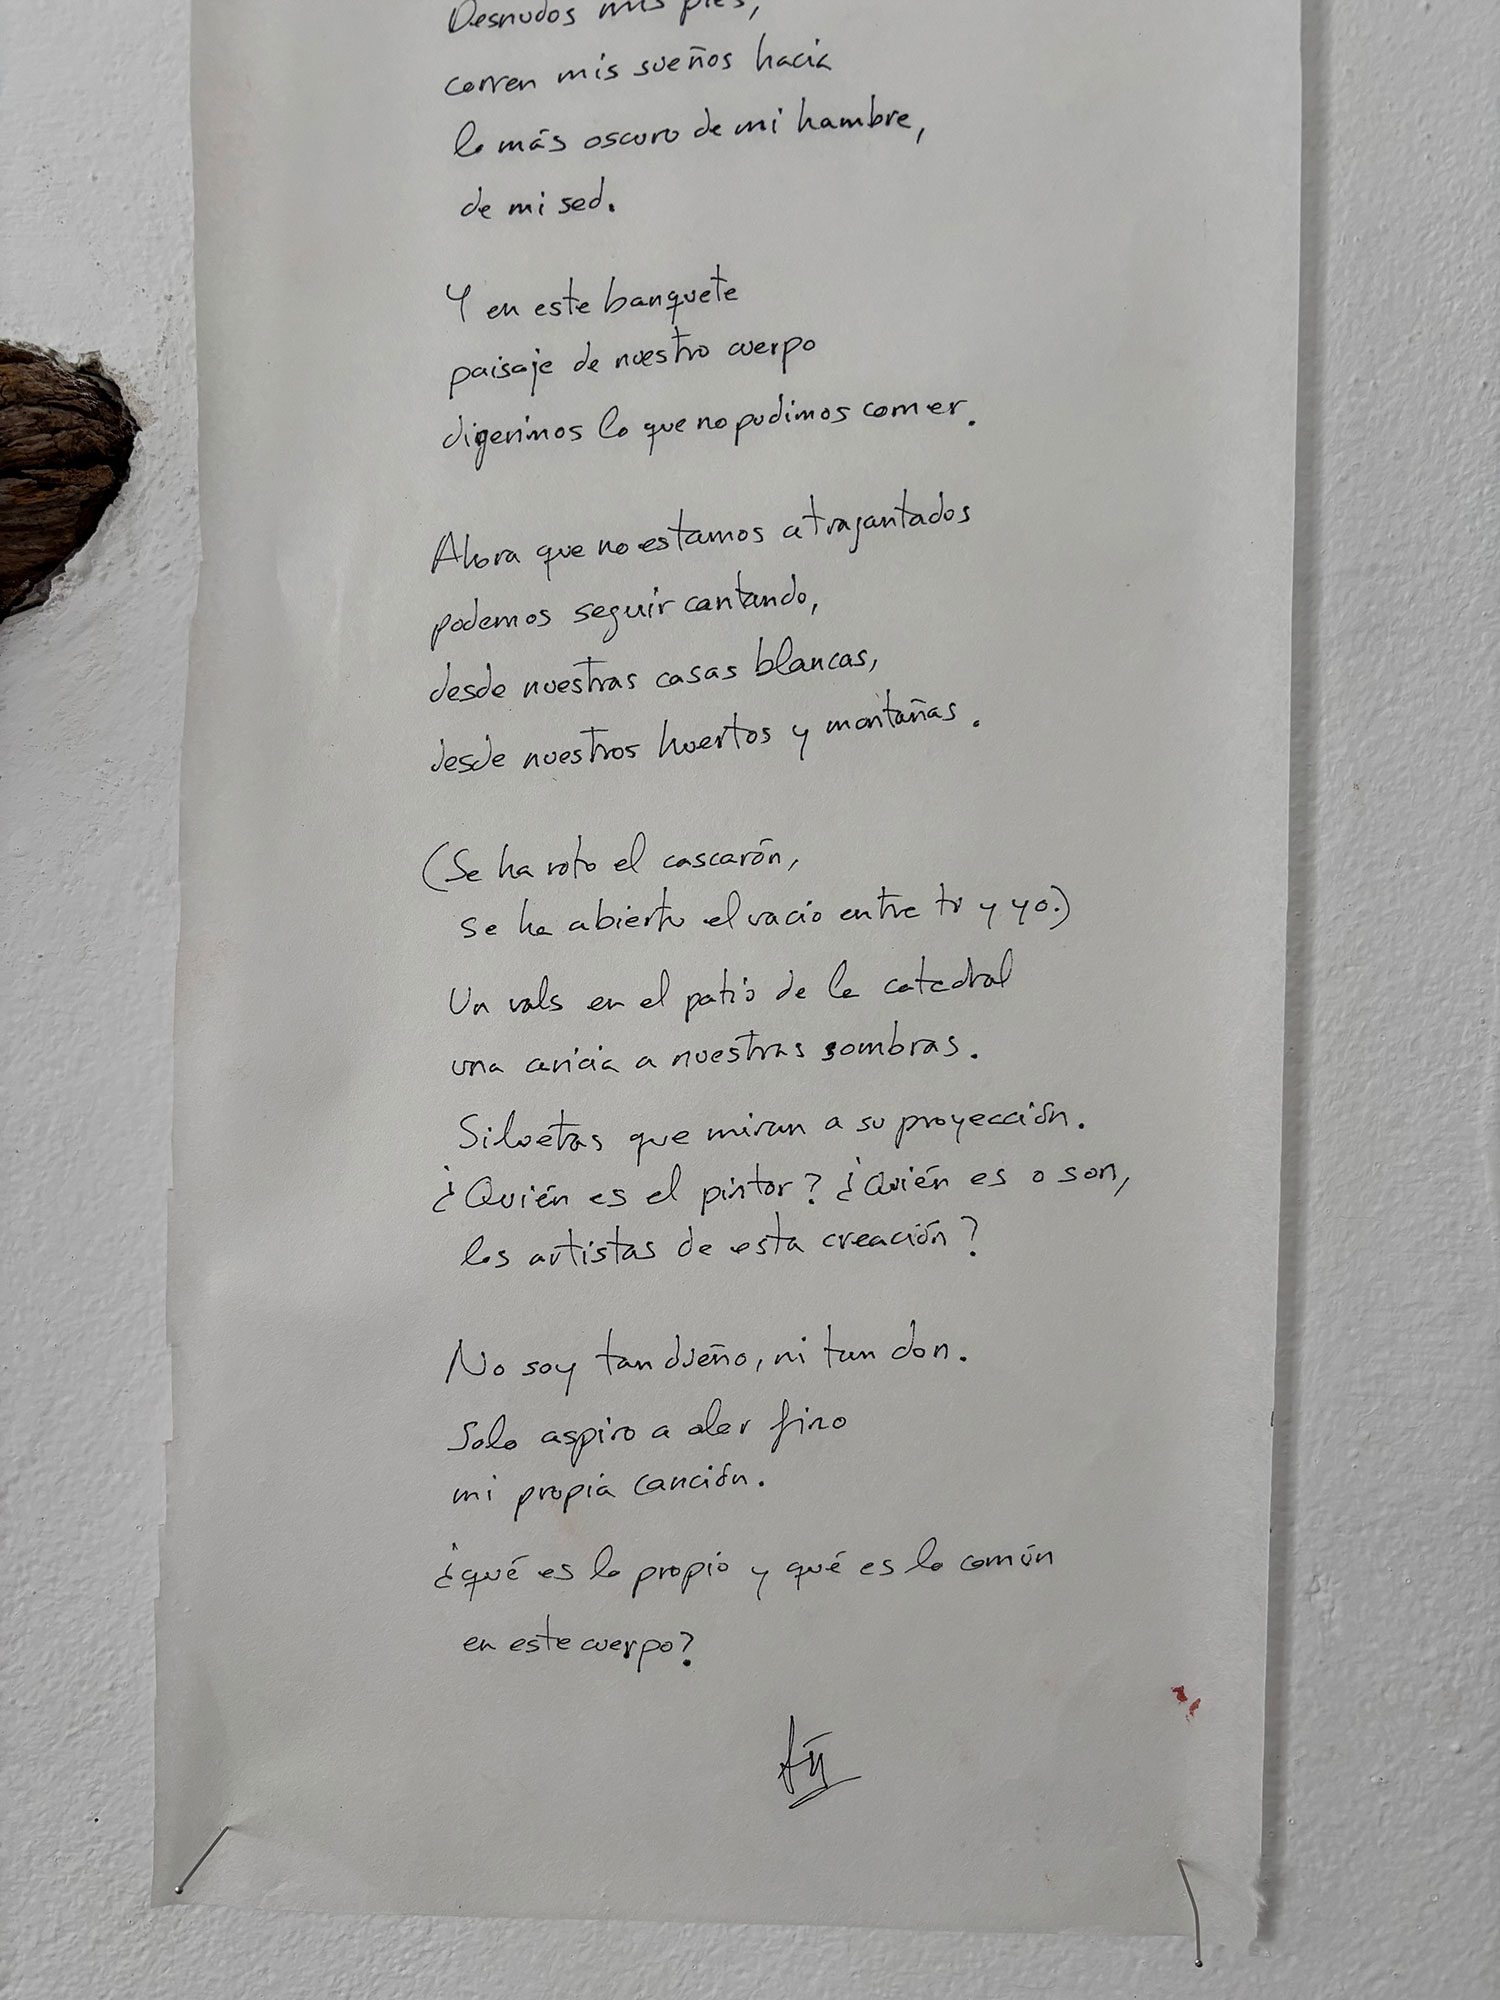 Desnudos mis pies,
corren mis sueños hacia
lo más oscuro de mi hambre,
de mi sed.
Y en este banquete
paisaje de nuestro cuerpo
digerimos lo que no pudimos comer.
Ahora que no estamos atragantados
podemos seguir cantando,
desde nuestras casas blancas,
desde nuestros huertos y montañas.
(Se ha roto el cascarón,
se ha abierto el vacio entre tú y yo.)
Un vals en el patio de la catedral
una caricia a nuestras sombras.
Siluetas que miran a su proyección.
¿Quién es el pintor? ¿Quién es o son,
los artistas de esta creación?
No soy tan dueño, ni tan don.
Solo aspiro a oler fino
mi propia canción.
¿qué es lo propio y qué es lo común
en este cuerpo?